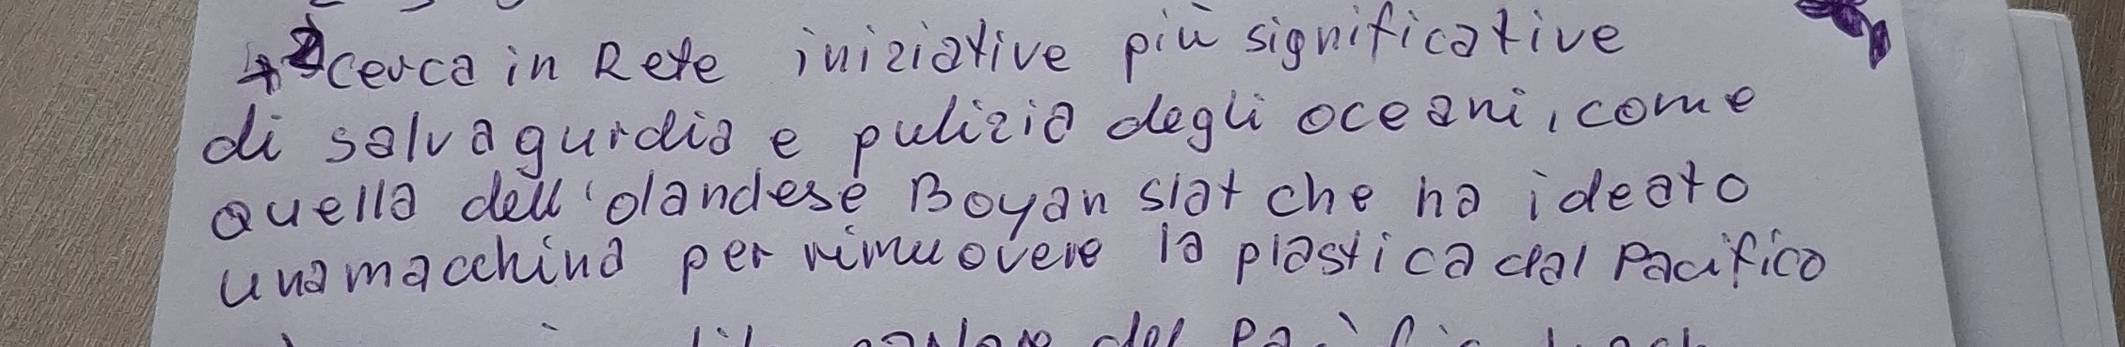 cerca in Rete iniziative più significative
di salvagurdia e pulizia degli oceani, come
quella dell'olandese Boyan slat che ha ideato
una macchina per rimuovere la plastica dal Pacifico